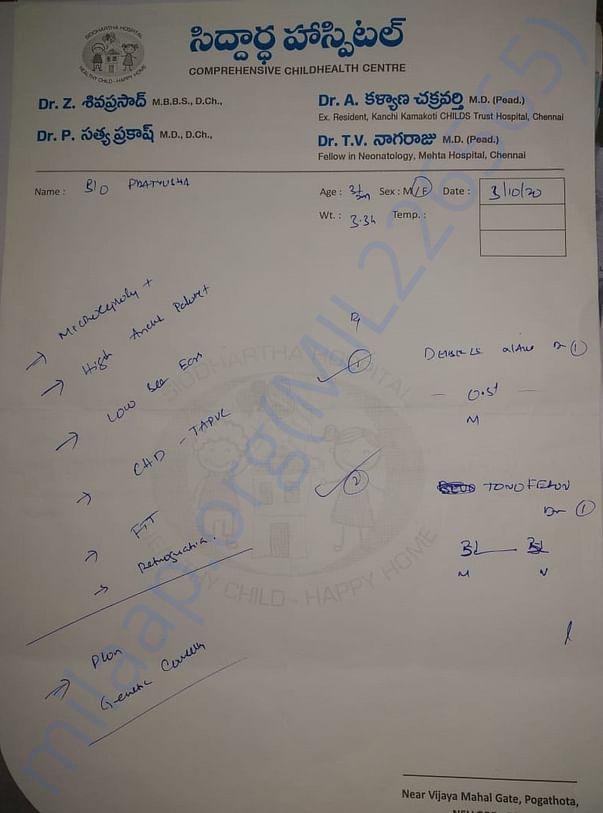 SIDDHARTHA HOSPITAL
HEALTHY CHILD - HAPPY HOME
సిద్ధార్థ హాస్పిటల్
COMPREHENSIVE CHILDHEALTH CENTRE
Dr. Z. శివప్రసాద్ M.B.B.S., D.Ch.,
Dr. A. కళ్యాణ చక్రవర్తి M.D. (Pead.)
Ex. Resident, Kanchi Kamakoti CHILDS Trust Hospital, Chennai
Dr. P. సత్య ప్రకాష్ M.D., D.Ch.,
Dr. T.V. నాగరాజు M.D. (Pead.)
Fellow in Neonatology, Mehta Hospital, Chennai
Name : B/O PRATYUSHA
Age : Sex : M/F Date : 3/10/20
Wt. : 3.34 Temp. :
→ Microcephaly +
→ High Arched Palate +
→ Low set Ears
→ CHD - TAPVC
→ FTT
→ Retrognathia.
→ Plan
Genetic
Rx
① Drops
M
② TONOFERON
M N
SIDDHARTHA HOSPITAL
HEALTHY CHILD - HAPPY HOME
milaap.org(MIL226565)
Near Vijaya Mahal Gate, Pogathota,